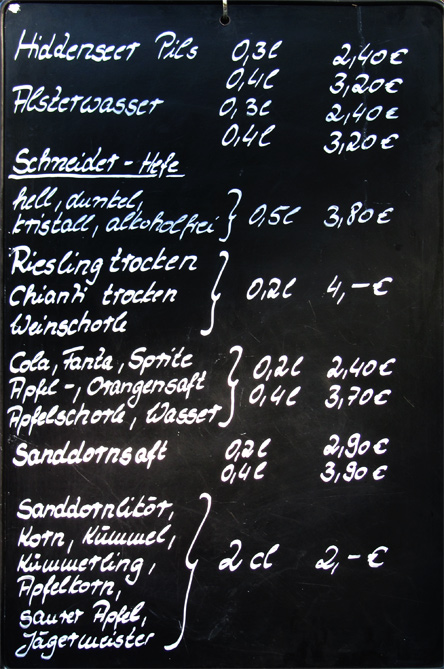 Hiddenseer Pils 0,3l 2,40€
0,4l 3,20€
Alsterwasser 0,3l 2,40€
0,4l 3,20€
Schneider-Hefe
hell, dunkel,
kristall, alkoholfrei } 0,5l 3,80€
Riesling trocken
Chianti trocken } 0,2l 4,-€
Weinschorle
Cola, Fanta, Sprite 0,2l 2,40€
Apfel-, Orangensaft } 0,4l 3,70€
Apfelschorle, Wasser
Sanddornsaft 0,2l 2,90€
0,4l 3,90€
Sanddornlikör,
Korn, Kümmel,
Kümmerling, } 2cl 2,-€
Apfelkorn,
saurer Apfel,
Jägermeister